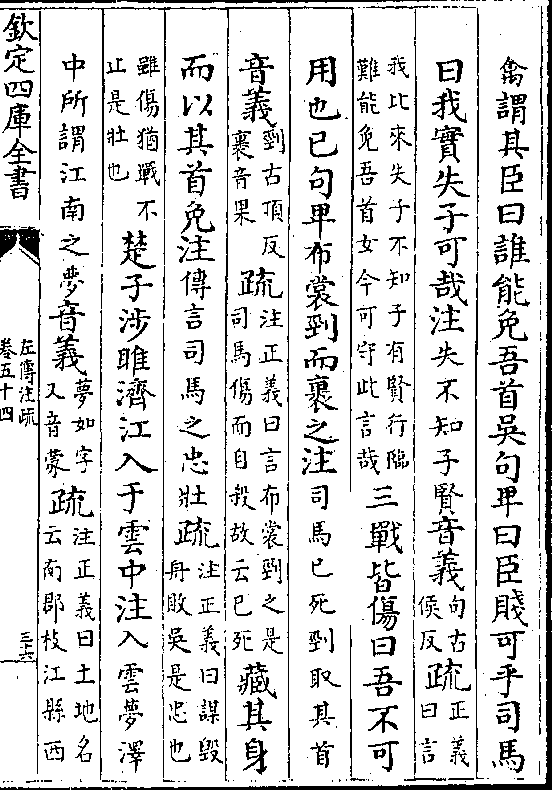 禽謂其臣曰誰能免吾首吳句卑曰臣賤可乎司馬
曰我實失子可哉注失不知子賢音義句古侯反疏正義曰言
我比來失子不知子有賢行臨難能免吾首女今可守此言哉三戰皆傷曰吾不可
用也已句卑布裳剄而裹之注司馬已死剄取其首
音義剄古頂反裹音果疏注正義曰言布裳剄之是司馬傷而自殺故云已死藏其身
而以其首免注傳言司馬之忠壯疏注正義曰謀毀舟敗吳是忠也
雖傷猶戰不止是壯也楚子涉雎濟江入于雲中注入雲夢澤
中所謂江南之夢音義夢如字又音蒙疏注正義曰土地名云南郡枝江縣西
欽定四庫全書
左傳注疏
卷五十四
三六